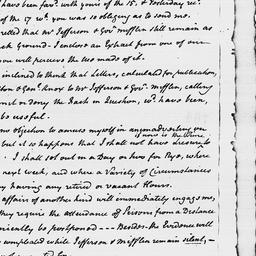 have been fav.d with yours of the 15. & Yesterday rec.d
of the 17th you was so obliging as to send me.
retted that Mr Jefferson & Gov.r Mifflin still remain as
ck ground. I enclose an Extract from one of our
you will perceive the use made of it.
inclined to think that Letters, calculated for publication,
ton & Gen.l Knox to Mr Jefferson & Gov.r Mifflin, calling
mit or deny the Dash in Question, w.d have been,
be useful.
no objection to amuse myself in animadverting on
is now in the Wane
but it so happens that I shall not have Leisure to
. I shall set out in a Day or two for Rye, where
next week, and where a Variety of Circumstances
my having any retired or vacant Hours.
affairs of another kind will immediately engage me,
they require the attendance of Persons from a Distance
niently be postponed — Besides the Evidence will
compleated while Jefferson & Mifflin remain silent,—